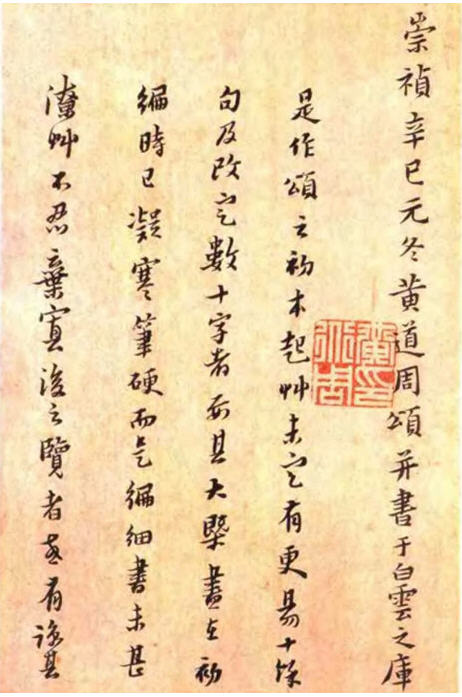 崇禎辛巳元冬黄道周頌并書于白雲之庫
是作頌之初本起艸未定有更易十餘
句及改定數十字者而其大槩盡在初
編時已凝寒筆硬而是編細書未甚
潦艸不忍棄寘後之覽者或有諒其